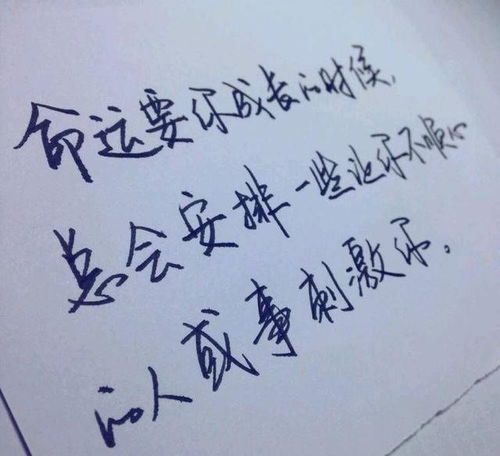 命运要你成长的时候，
总会安排一些让你不顺心
的人或事刺激你.